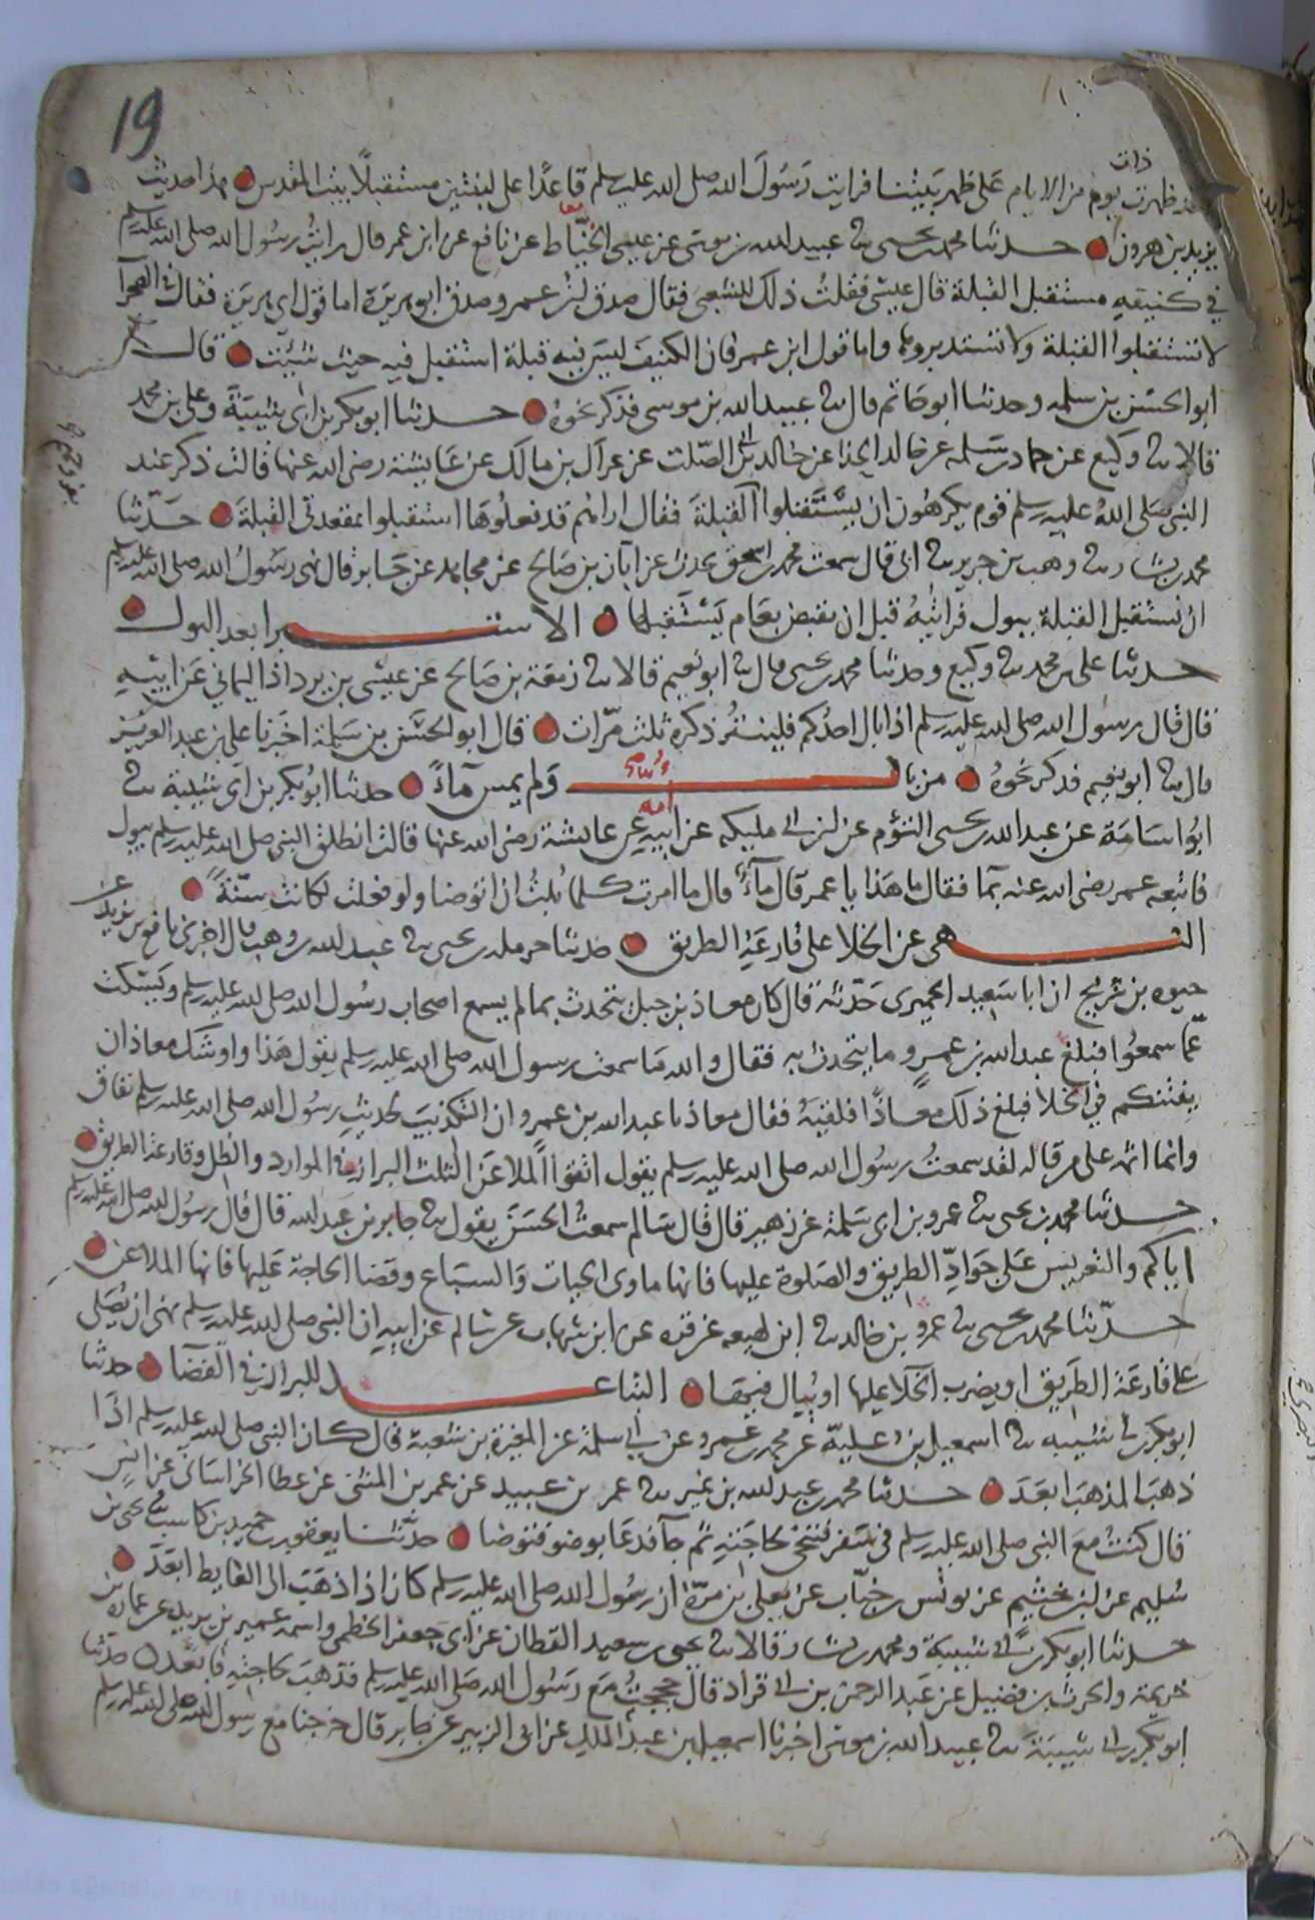 19
ذات
ظهرت يوم من الايام على ظهر بيتنا فرايت رسول الله صلى الله عليه وسلم قاعدا على لبنتين مستقبلا بيت المقدس هذا حديث
يزيد بن هرون حدثنا محمد بن يحيى ثنا عبيد الله بن موسى عن عيسى الخياط عن نافع عن ابن عمر قال رايت رسول الله صلى الله عليه وسلم
في كنيفه مستقبل القبلة قال عيسى فقلت ذلك للشعبي فقال صدق ابن عمر وصدق ابو هريرة اما قول ابي هريرة فقال في الصحرا
لا تستقبلوا القبلة ولا تستدبروها واما قول ابن عمر فان الكنيف ليس فيه قبلة استقبل فيه حيث شيت قال
ابو الحسن بن سلمه وحدثنا ابو حاتم قال ثنا عبيد الله بن موسى فذكر نحوه حدثنا ابو بكر بن ابي شيبة وعلي بن محمد
قالا ثنا وكيع عن حماد بن سلمه عن خالد الحذا عن خالد بن ابي الصلت عن عراك بن مالك عن عايشة رضي الله عنها قالت ذكر عند
النبي صلى الله عليه وسلم قوم يكرهون ان يستقبلوا القبلة فقال اراهم قد فعلوها استقبلوا بمقعدتي القبلة حدثنا
محمد بن بشار ثنا وهب بن جرير ثنا ابي قال سمعت محمد بن اسحق يحدث عن ابان بن صالح عن مجاهد عن جابر قال نهى رسول الله صلى الله عليه وسلم
ان نستقبل القبلة ببول فرايته قبل ان يقبض بعام يستقبلها الاستبرا بعد البول
حدثنا علي بن محمد ثنا وكيع وحدثنا محمد بن يحيى قال ثنا ابو نعيم قالا ثنا زمعة بن صالح عن عيسى بن يرداد اليماني عن ابيه
قال قال رسول الله صلى الله عليه وسلم اذا بال احدكم فلينتر ذكره ثلث مرات قال ابو الحسن بن سلمة اخبرنا علي بن عبد العزيز
قال ثنا ابو نعيم فذكر نحوه من بال ولم يمس ماء حدثنا ابو بكر بن ابي شيبة ثنا
امه
ابو اسامة عن عبد الله بن يحيى التؤم عن ابن ابي مليكه عن ابيه عن عائشة رضي الله عنها قالت انطلق النبي صلى الله عليه وسلم يبول
فاتبعه عمر رضي الله عنه بما فقال ما هذا يا عمر قال ماء قال ما امرت كلما بلت ان اتوضا ولو فعلت لكانت سنة
النهي عن الخلا على قارعة الطريق حدثنا حرمله بن يحيى ثنا عبد الله بن وهب قال اخبرني نافع بن يزيد عن
حيوه بن شريح ان ابا سعيد الحميري حدثه قال كان معاذ بن جبل يتحدث بما لم يسمع اصحاب رسول الله صلى الله عليه وسلم ويسكت
عما سمعوا فبلغ عبد الله بن عمرو ما يتحدث به فقال والله ما سمعت رسول الله صلى الله عليه وسلم يقول هذا واوشك معاذ ان
يفتنكم في الخلا فبلغ ذلك معاذا فلقيه فقال معاذ يا عبد الله بن عمرو ان التكذيب لحديث رسول الله صلى الله عليه وسلم نفاق
وانما اثمه على من قاله لقد سمعت رسول الله صلى الله عليه وسلم يقول اتقوا الملاعن الثلث البراز في الموارد والظل وقارعة الطريق
حدثنا محمد بن يحيى ثنا عمرو بن ابي سلمة عن زهير قال قال سالم سمعت الحسن يقول ثنا جابر بن عبد الله قال قال رسول الله صلى الله عليه وسلم
اياكم والتعريس على جواد الطريق والصلوة عليها فانها ماوى الحيات والسباع وقضا الحاجة عليها فانها الملاعن
حدثنا محمد بن يحيى ثنا عمرو بن خالد ثنا ابن لهيعه عن قره عن ابن شهاب عن سالم عن ابيه ان النبي صلى الله عليه وسلم نهى ان يصلى
على قارعة الطريق او يضرب الخلا عليها او يبال فيها التباعد للبراز في الفضا حدثنا
ابو بكر بن ابي شيبه ثنا اسمعيل بن علية عن محمد بن عمرو عن ابي سلمة عن المغيرة بن شعبة قال كان النبي صلى الله عليه وسلم اذا
ذهب المذهب ابعد حدثنا محمد بن عبد الله بن نمير ثنا عمر بن عبيد عن عمر بن المثنى عن عطا الخراساني عن انس
قال كنت مع النبي صلى الله عليه وسلم في سفر فتنحى لحاجته ثم جا فدعا بوضو فتوضا حدثنا يعقوب بن حميد بن كاسب ثنا يحيى بن
سليم عن ابن خثيم عن يونس بن خباب عن يعلى بن مرة ان رسول الله صلى الله عليه وسلم كان اذا ذهب الى الغايط ابعد
حدثنا ابو بكر بن ابي شيبة ومحمد بن بشار قالا ثنا يحيى بن سعيد القطان عن ابي جعفر الخطمي واسمه عمير بن يزيد عن عمارة بن
خزيمة والحرث بن فضيل عن عبد الرحمن بن ابي قراد قال حججت مع رسول الله صلى الله عليه وسلم فذهب لحاجته فابعد حدثنا
ابو بكر بن ابي شيبة ثنا عبيد الله بن موسى اخبرنا اسمعيل بن عبد الملك عن ابي الزبير عن جابر قال خرجنا مع رسول الله صلى الله عليه وسلم